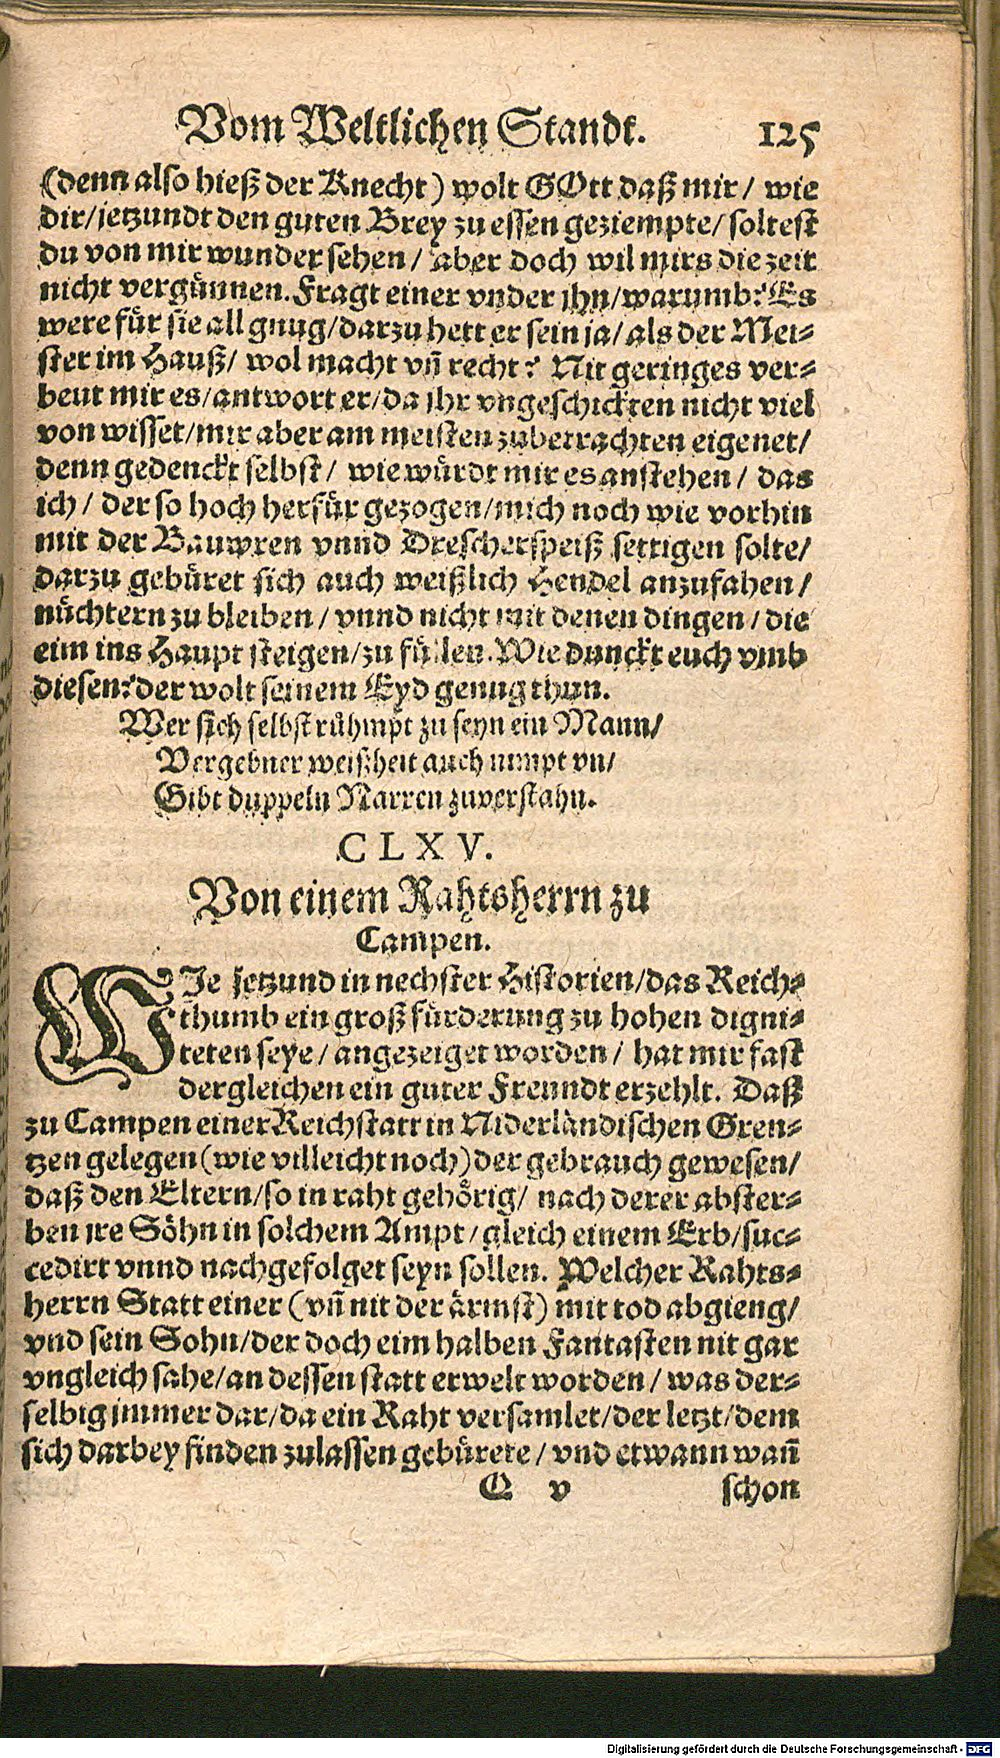 Vom Weltlichen Standt. 125
(denn also hieß der Knecht) wolt GOtt daß mir / wie
dir/jetzundt den guten Brey zu essen geziempte/ soltest
du von mir wunder sehen / aber doch wil mirs die zeit
nicht vergünnen. Fragt einer vnder ihn/warumb? Es
were für sie all gnug/darzu hett er sein ja/ als der Mei-
ster im Hauß/ wol macht vñ recht? Nit geringes ver-
beut mir es/antwort er/da ihr vngeschickten nicht viel
von wisset/mir aber am meisten zubetrachten eigenet/
denn gedenckt selbst/ wie würdt mir es anstehen / das
ich / der so hoch herfür gezogen/mich noch wie vorhin
mit der Bauwren vnnd Drescherspeiß settigen solte/
darzu gebüret sich auch weißlich Hendel anzufahen /
nüchtern zu bleiben / vnnd nicht mit denen dingen / die
eim ins Haupt steigen/zu füllen. Wie dunckt euch vmb
diesen? der wolt seinem Eyd genug thun.
Wer sich selbst rühmpt zu seyn ein Mann/
Vergebner weißheit auch nimpt an/
Gibt duppeln Narren zuverstahn.
CLXV.
Von einem Rahtsherrn zu
Campen.
WIe jetzund in nechster Historien/das Reich-
thumb ein groß fürderung zu hohen digni-
teten seye / angezeiget worden / hat mir fast
dergleichen ein guter Freundt erzehlt. Daß
zu Campen einer Reichstatt in Niderländischen Gren-
tzen gelegen (wie villeicht noch) der gebrauch gewesen/
daß den Eltern/so in raht gehörig/ nach derer abster-
ben ire Söhn in solchem Ampt / gleich einem Erb/suc-
cedirt vnnd nachgefolget seyn sollen. Welcher Rahts-
herrn Statt einer (vñ nit der ärmst) mit tod abgieng/
vnd sein Sohn/der doch eim halben Fantasten nit gar
vngleich sahe/an dessen statt erwelt worden / was der-
selbig immer dar/da ein Raht versamlet/der letzt/dem
sich darbey finden zulassen gebürete / vnd etwann wañ
Q v schon
Digitalisierung gefördert durch die Deutsche Forschungsgemeinschaft - DFG